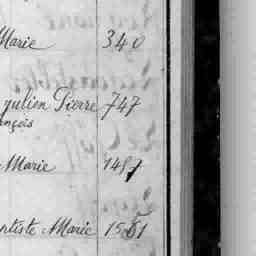 Marie 340
Julien Pierre 747
ançois
Marie 1487
ptiste Marie 1551